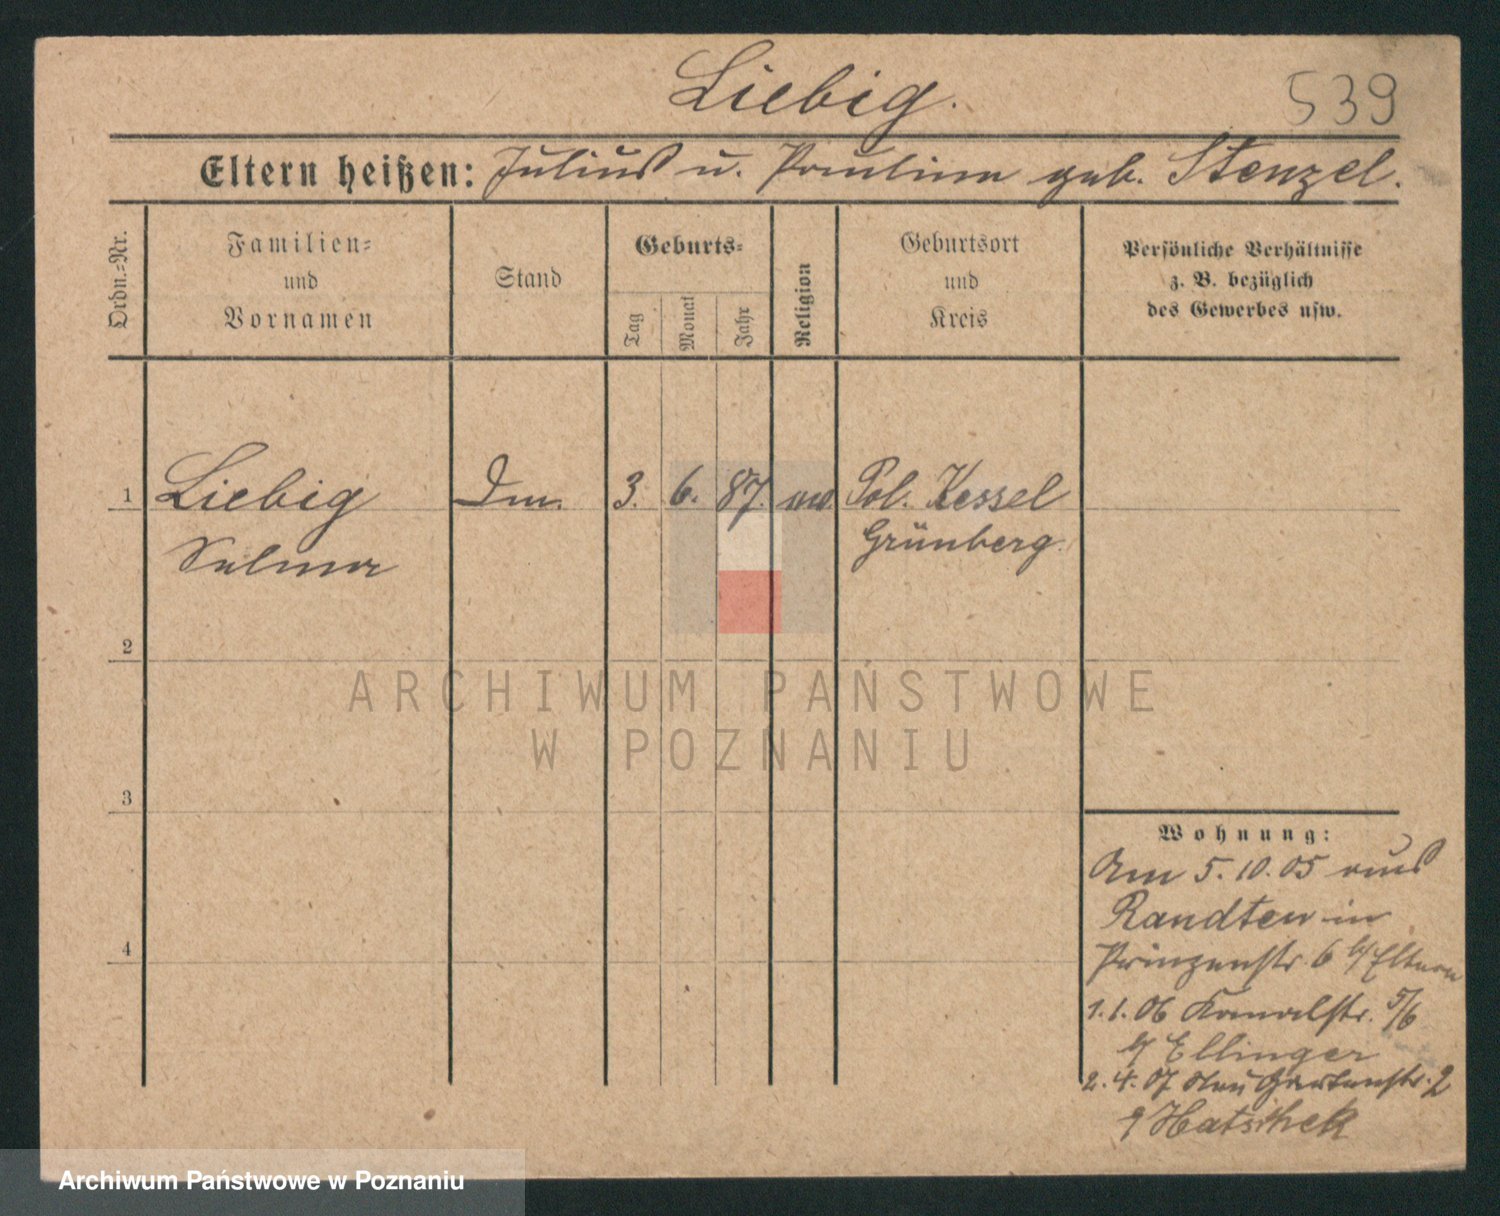 Liebig.
539
Eltern heißen: Julius u. Pauline geb. Stenzel.
Ordn.=Nr.
Familien=
und
Vornamen
Stand
Geburts=
Tag
Monat
Jahr
Religion
Geburtsort
und
Kreis
Persönliche Verhältnisse
z. B. bezüglich
des Gewerbes usw.
1 Liebig 3. 6. 87. Pol. Kessel
Selma Grünberg.
2
ARCHIWUM PAŃSTWOWE
W POZNANIU
3
Wohnung:
Am 5.10.05 aus
Raudten in
Prinzenstr. 6 b/ Eltern
1.1.06 Kanalstr. 5/6
b/ Ellinger
4
2.4.07 Neu Gartenstr. 2
Hatschek
Archiwum Państwowe w Poznaniu